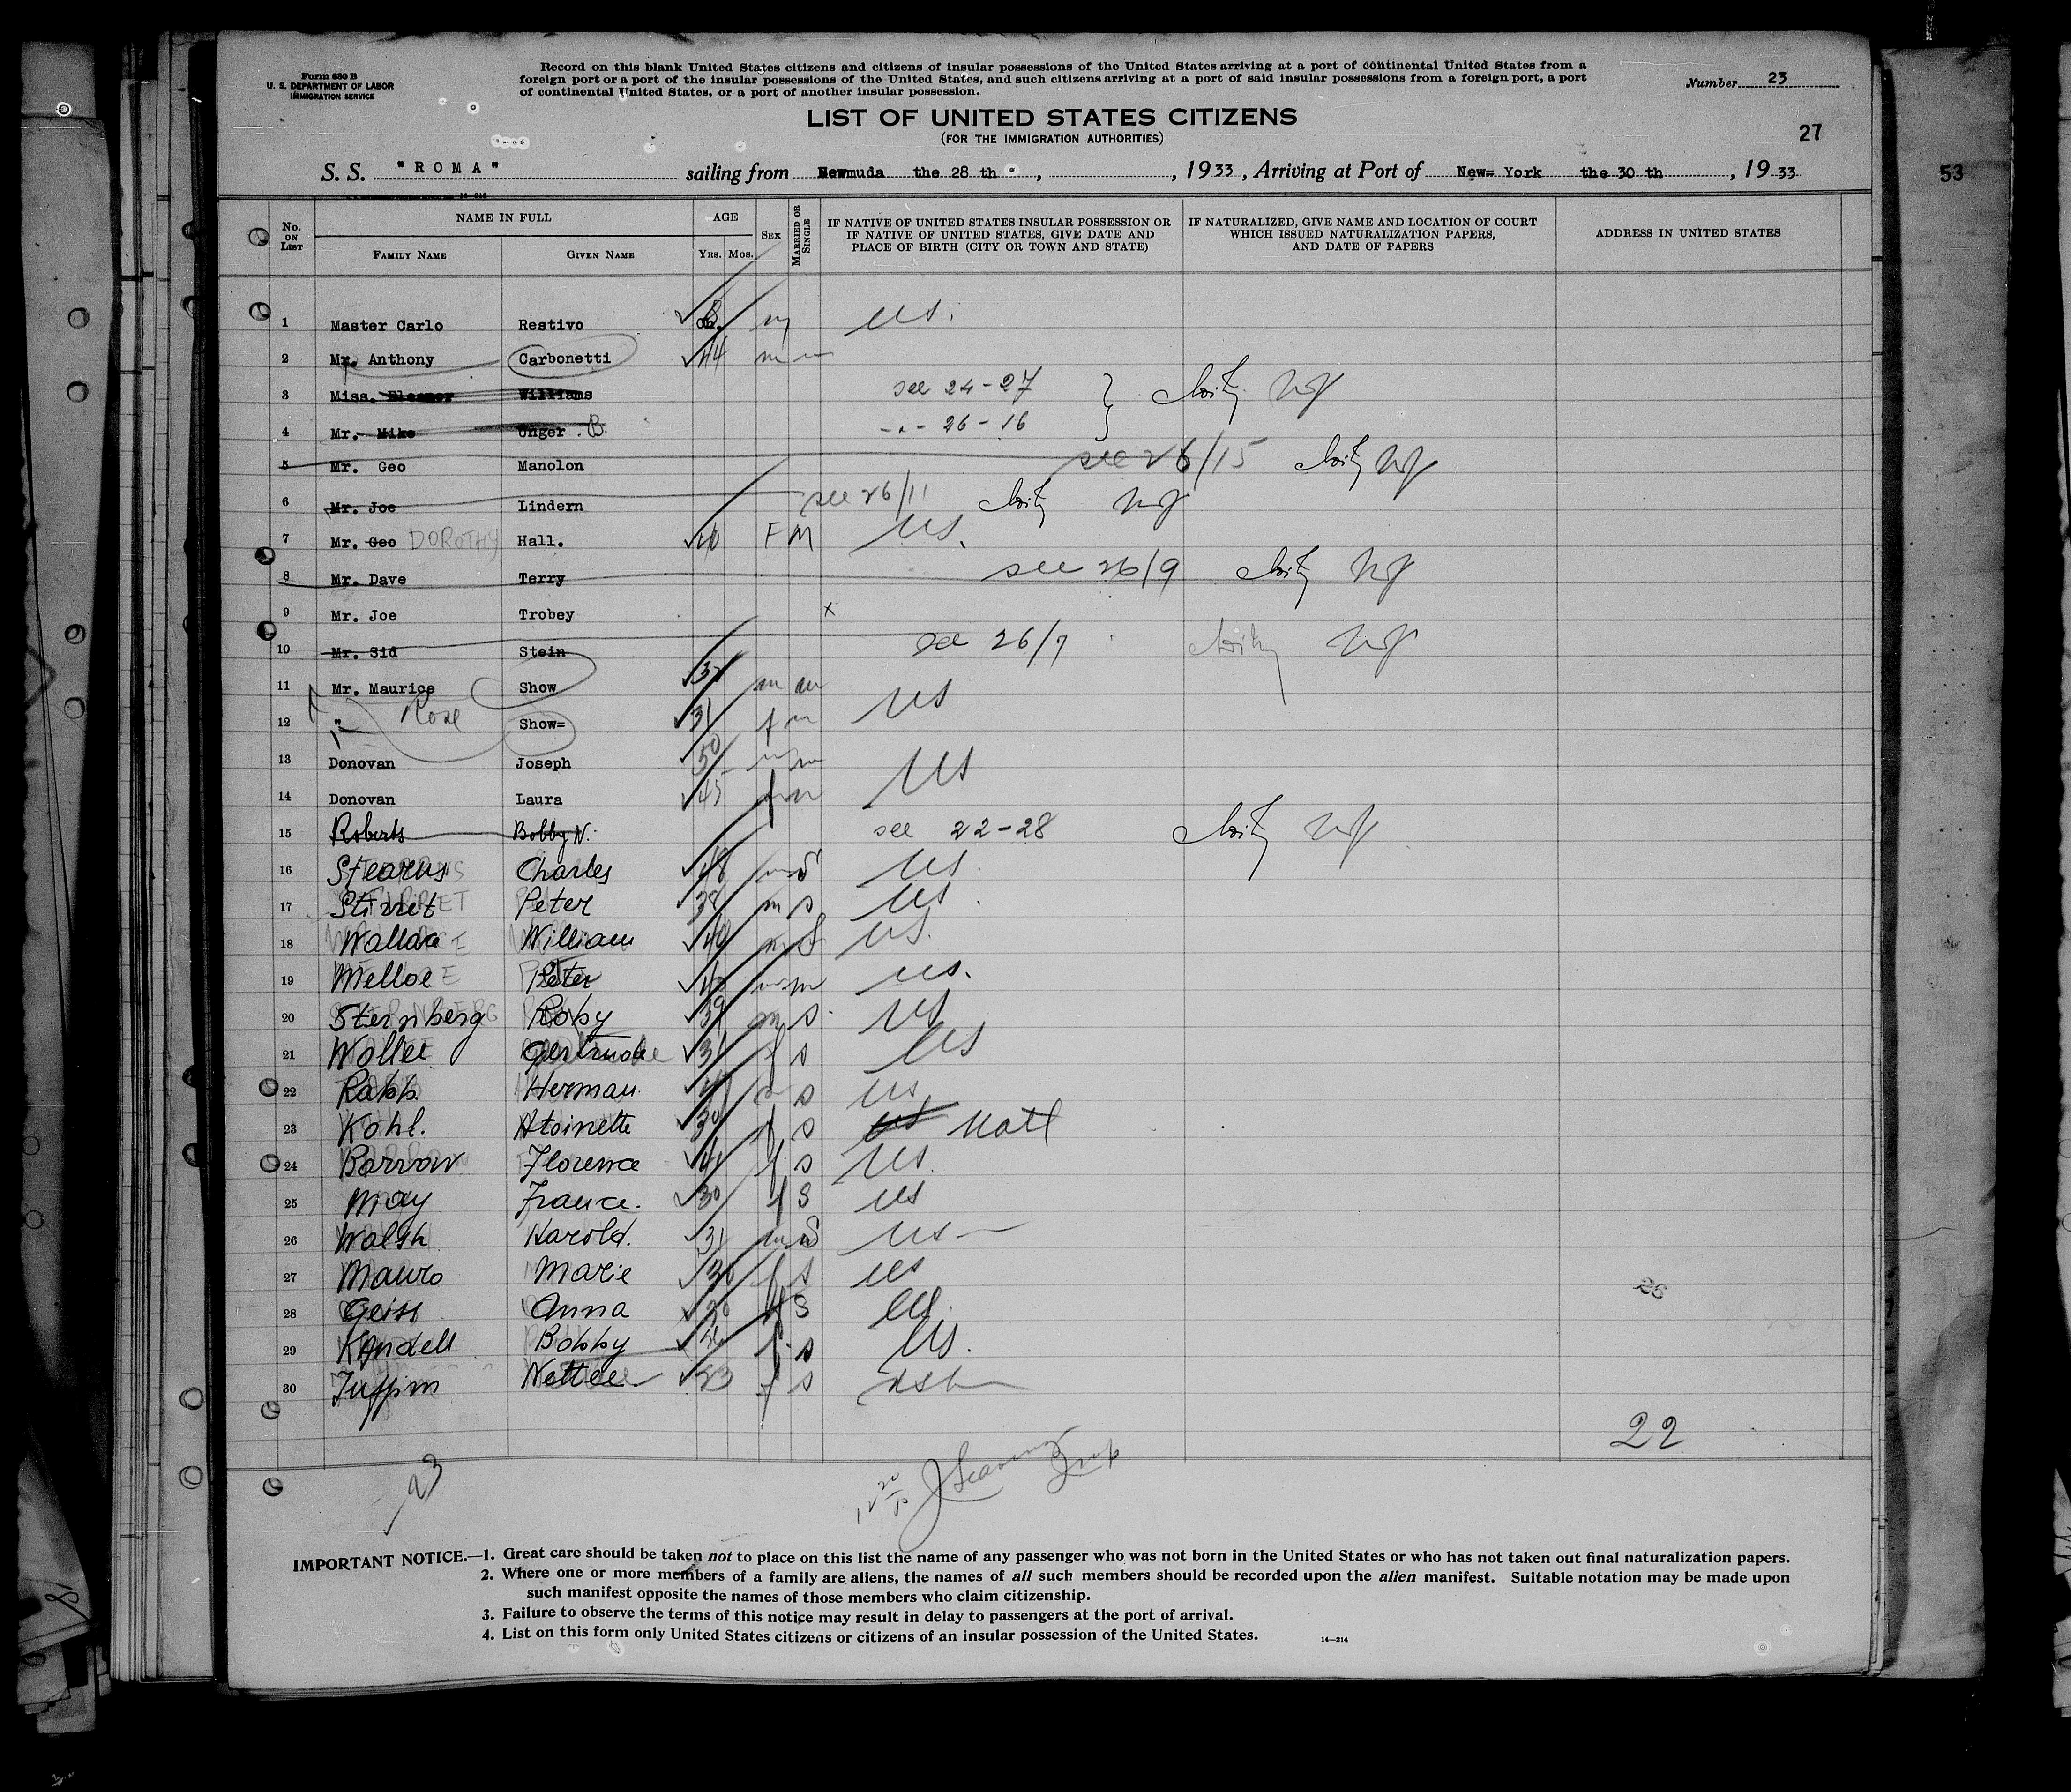 Form 630 B
U. S. DEPARTMENT OF LABOR
IMMIGRATION SERVICE
Record on this blank United States citizens and citizens of insular possessions of the United States arriving at a port of continental United States from a
foreign port or a port of the insular possessions of the United States, and such citizens arriving at a port of said insular possessions from a foreign port, a port
of continental United States, or a port of another insular possession.
Number 23
LIST OF UNITED STATES CITIZENS
(FOR THE IMMIGRATION AUTHORITIES)
27
53
S. S. "ROMA" sailing from the 28 th, 1933, Arriving at Port of New= York the 30 th, 1933
No. ON LIST
NAME IN FULL
FAMILY NAME GIVEN NAME
AGE
YRS. MOS.
SEX
MARRIED OR SINGLE
IF NATIVE OF UNITED STATES INSULAR POSSESSION OR
IF NATIVE OF UNITED STATES, GIVE DATE AND
PLACE OF BIRTH (CITY OR TOWN AND STATE)
IF NATURALIZED, GIVE NAME AND LOCATION OF COURT
WHICH ISSUED NATURALIZATION PAPERS,
AND DATE OF PAPERS
ADDRESS IN UNITED STATES
1 Master Carlo Restivo m US.
2 Mr. Anthony Carbonetti 44 m m
3 Miss. Eleanor Williams see 24-27
4 Mr. Mike Unger. B. 26-16
5 Mr. Geo Manolon see 26/15
6 Mr. Joe Lindern see 26/11
7 Mr. Geo DOROTHY Hall. 40 F M US.
8 Mr. Dave Terry see 26/9
9 Mr. Joe Trobey x
10 Mr. Sid Stein see 26/7
11 Mr. Maurice Show m m US
12 " Rose Show= 31 f m
13 Donovan Joseph 50 m m US
14 Donovan Laura 45 f m
15 Roberts Bobby N. see 22-28
16 Stearns Charles 48 m S US
17 Stirret Peter 38 m s US
18 Wallace William 40 m S US.
19 Melloe Peter m m US.
20 Sternberg Roby 39 m s US
21 Gertrude 31 f s US
22 Rabb Herman. m s US
23 Kohl. Atoinette 30 f s US Natl
24 Barrow Florence f s US.
25 May France. 30 f S US
26 Walsh Harold. 31 m S US
27 Mauro Marie 30 f s US
28 Geiss Anna f S US.
29 Kandell Bobby f. s US.
30 Nettie 23 f s
26
22
23
IMPORTANT NOTICE.—1. Great care should be taken not to place on this list the name of any passenger who was not born in the United States or who has not taken out final naturalization papers.
2. Where one or more members of a family are aliens, the names of all such members should be recorded upon the alien manifest. Suitable notation may be made upon
such manifest opposite the names of those members who claim citizenship.
3. Failure to observe the terms of this notice may result in delay to passengers at the port of arrival.
4. List on this form only United States citizens or citizens of an insular possession of the United States.
14—214